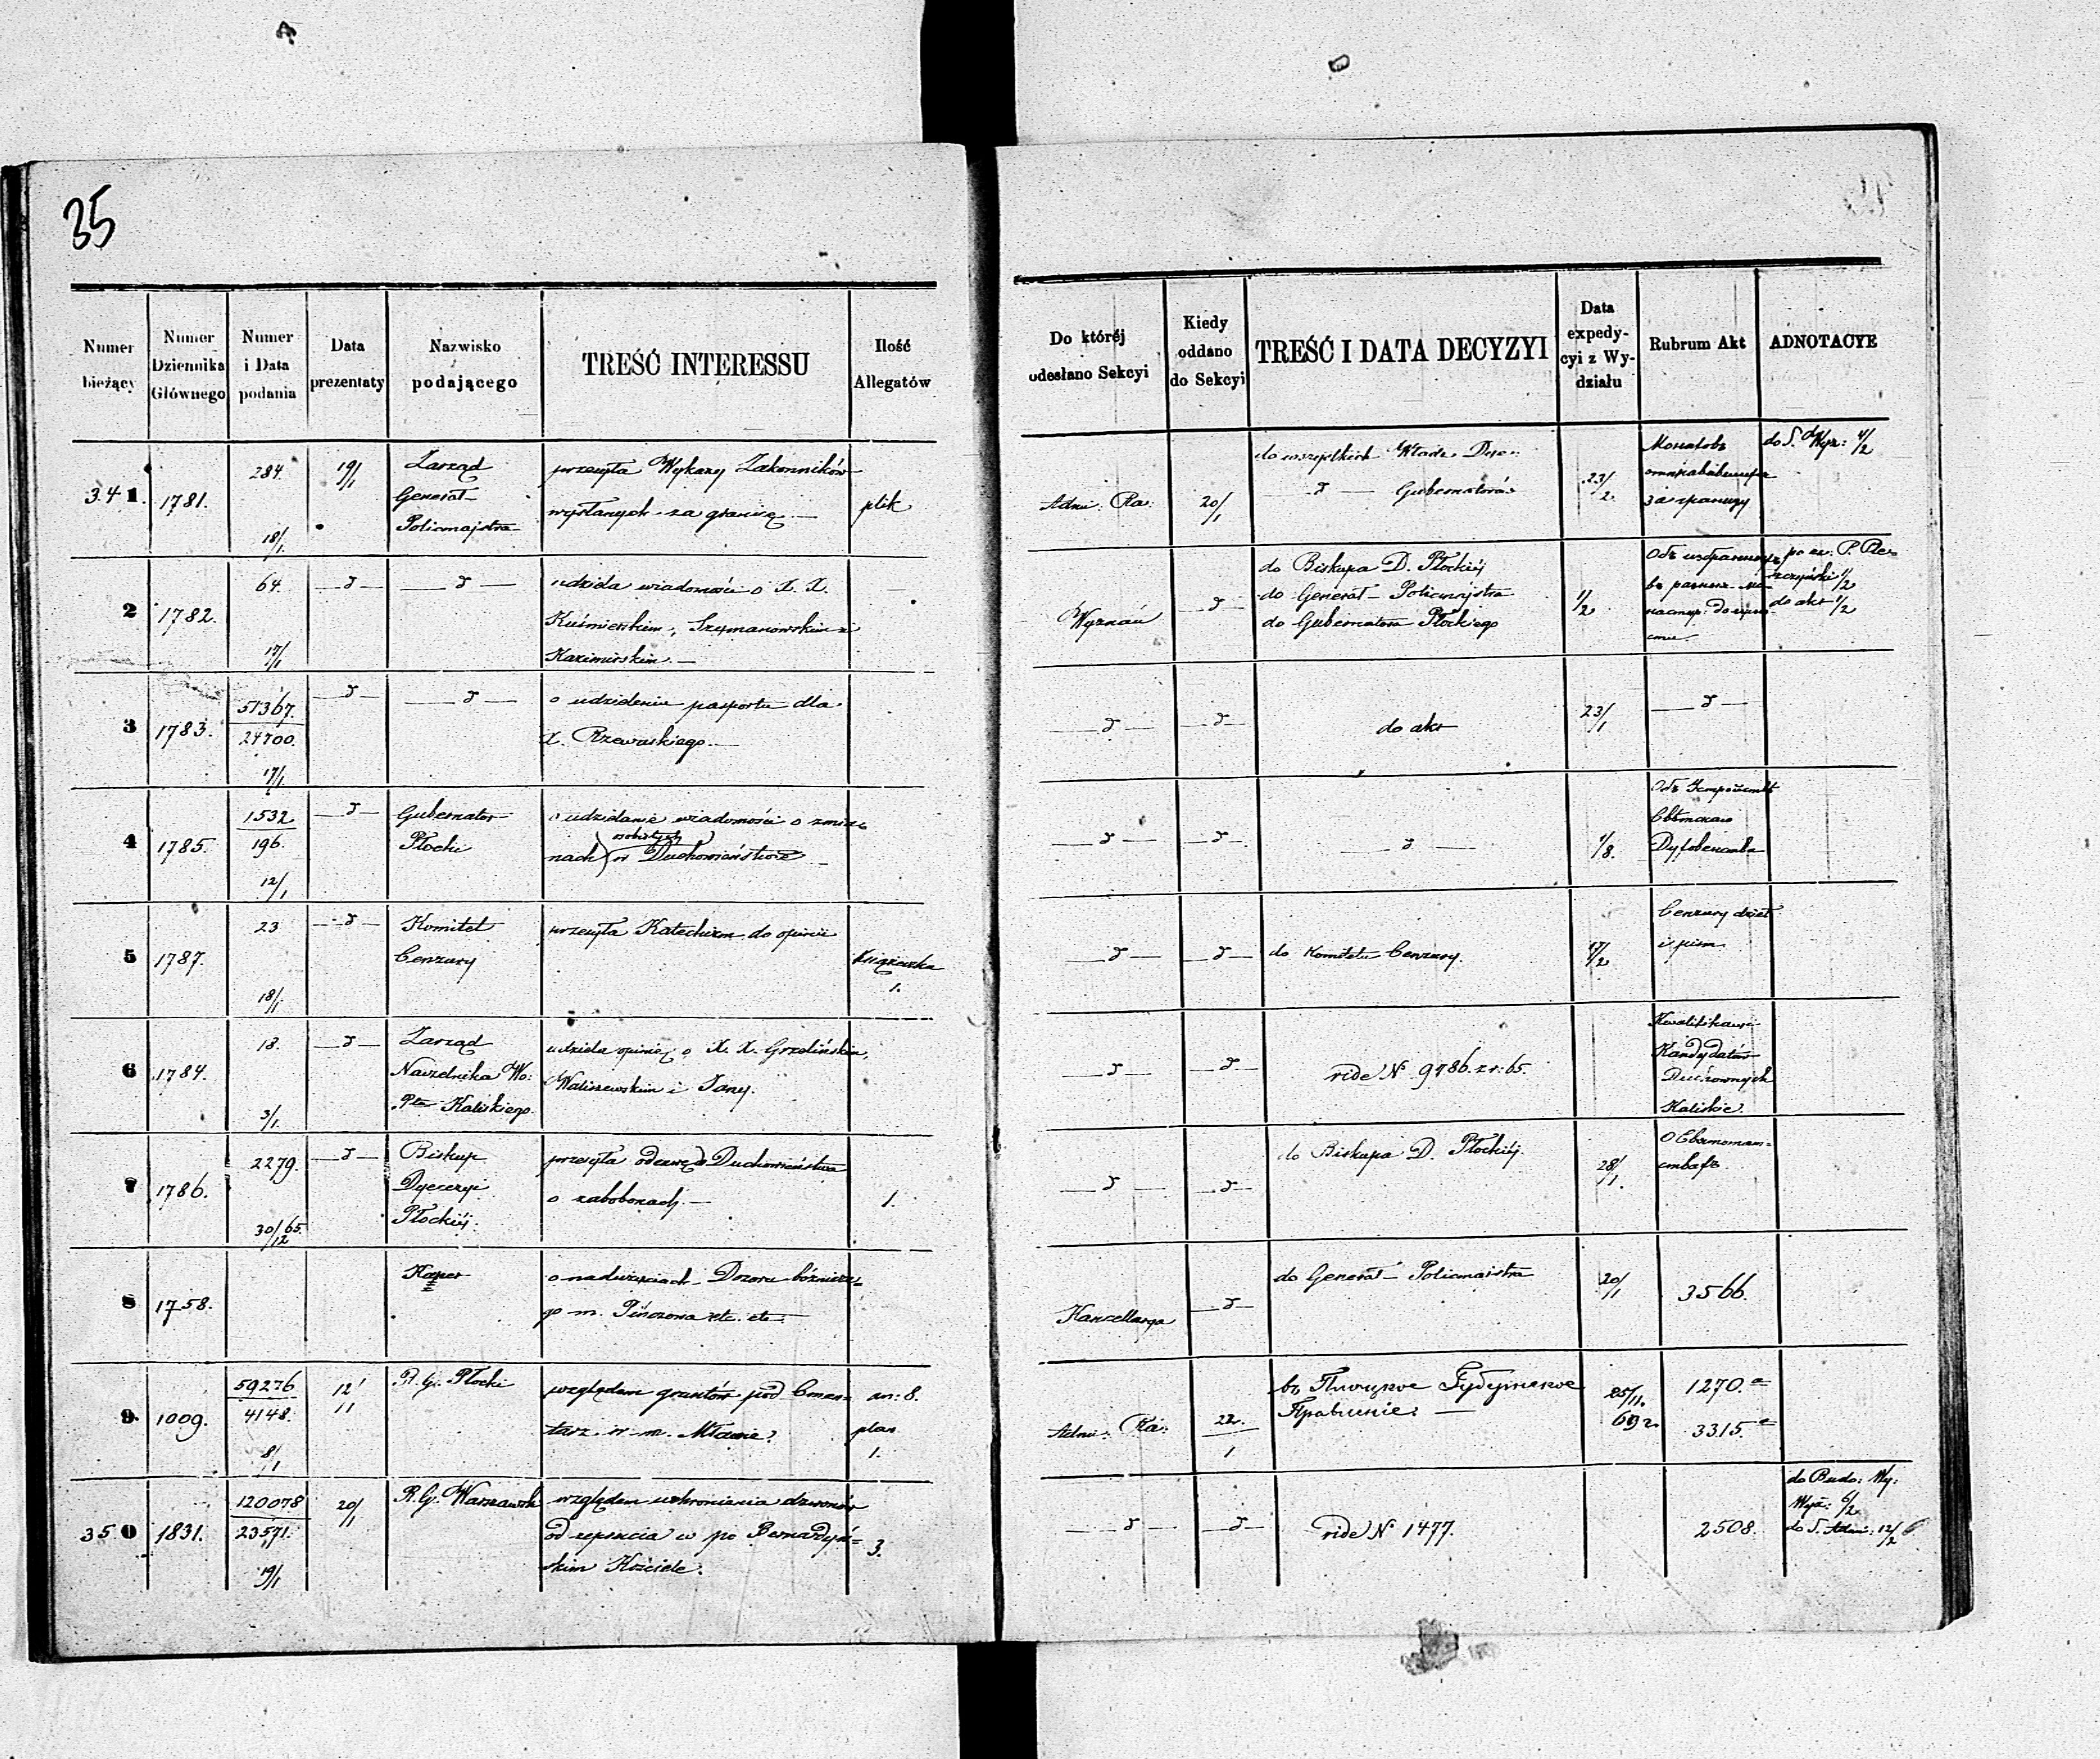 35
Numer bieżący
Numer Dziennika Głównego
Numer i Data podania
Data prezentaty
Nazwisko podającego
TREŚĆ INTERESSU
Ilość Allegatów
Do której odesłano Sekcyi
Kiedy oddano do Sekcyi
TREŚĆ I DATA DECYZYI
Data expedycyi z Wydziału
Rubrum Akt
ADNOTACYE
341.
1781.
284.
18/1.
19/1
Zarząd
Generał
Policmajstra
przesyła Wykazy Zakonników
wysłanych za granicę.
plik
Adm: Ra:
20/1
do wszystkich Władz Dyec:
d Gubernatorów
23/2
за границу
do S. Wyz: 4/2
2
1782.
64.
17/1
d
d
udziela wiadomości o X. X.
Kuśmierskim, Szymanowskim i
Kazimirskim.
Wyznań
d
do Biskupa D. Płockiéj
do Generał Policmajstra
do Gubernatora Płockiego
1/2
do akt 1/2
3
1783.
51367.
24700.
17/1
d
d
o udzielenie pasportu dla
X. Rzewuskiego.
d
d
do akt
23/1
d
4
1785.
1532
196.
12/1
d
Gubernator
Płocki
o udzielanie wiadomości o zmia-
nach osobistych w Duchowieństwie
d
d
d
1/8.
Духовенства
5
1787.
23
18/1.
d
Komitet
Cenzury
przesyła Katechizm do opinii
Książeczka
1.
d
d
do Komitetu Cenzury.
17/2
Cenzury dzieł
i pism
6
1784.
18.
3/1.
d
Zarząd
Naczelnika Wo:
Kaliskiego.
udziela opinię o X. X. Grzelińskim,
Waliszewskim i Jany.
d
d
vide N 9786. z r: 65.
Kwalifikacyi
Kandydatów
Duchownych
Kaliskie
7
1786.
2279.
30/12 65.
d
Biskup
Dyecezyi
Płockiéj.
przesyła odezwę do Duchowieństwa
o zabobonach.
1.
d
d
do Biskupa D. Płockiéj.
28/1.
8
1758.
Koper
o nadużyciach Dozoru bóżnicze-
go m. Pińczowa etc. etc.
Kancellarya
d
do Generał Policmajstra
20/1
3566.
9.
1009.
59276
4148.
8/1
12/1
R. G. Płocki
względem gruntów pod Cmen-
tarz w m. Mławie.
an: 8.
plan
1.
Adm: Ra:
22.
1
въ Плоцкое Губернское
Правление.
25/11.
69 г.
1270.
3315.
350
1831.
120078
23571.
19/1
20/1
R. G. Warszawski
względem uchronienia dzwonów
od zepsucia w po Bernardyń-
skim Kościele.
3.
d
d
vide N 1477.
2508.
do Budo: Wy:
Wyz: 6/2
do S. Adm: 12/2